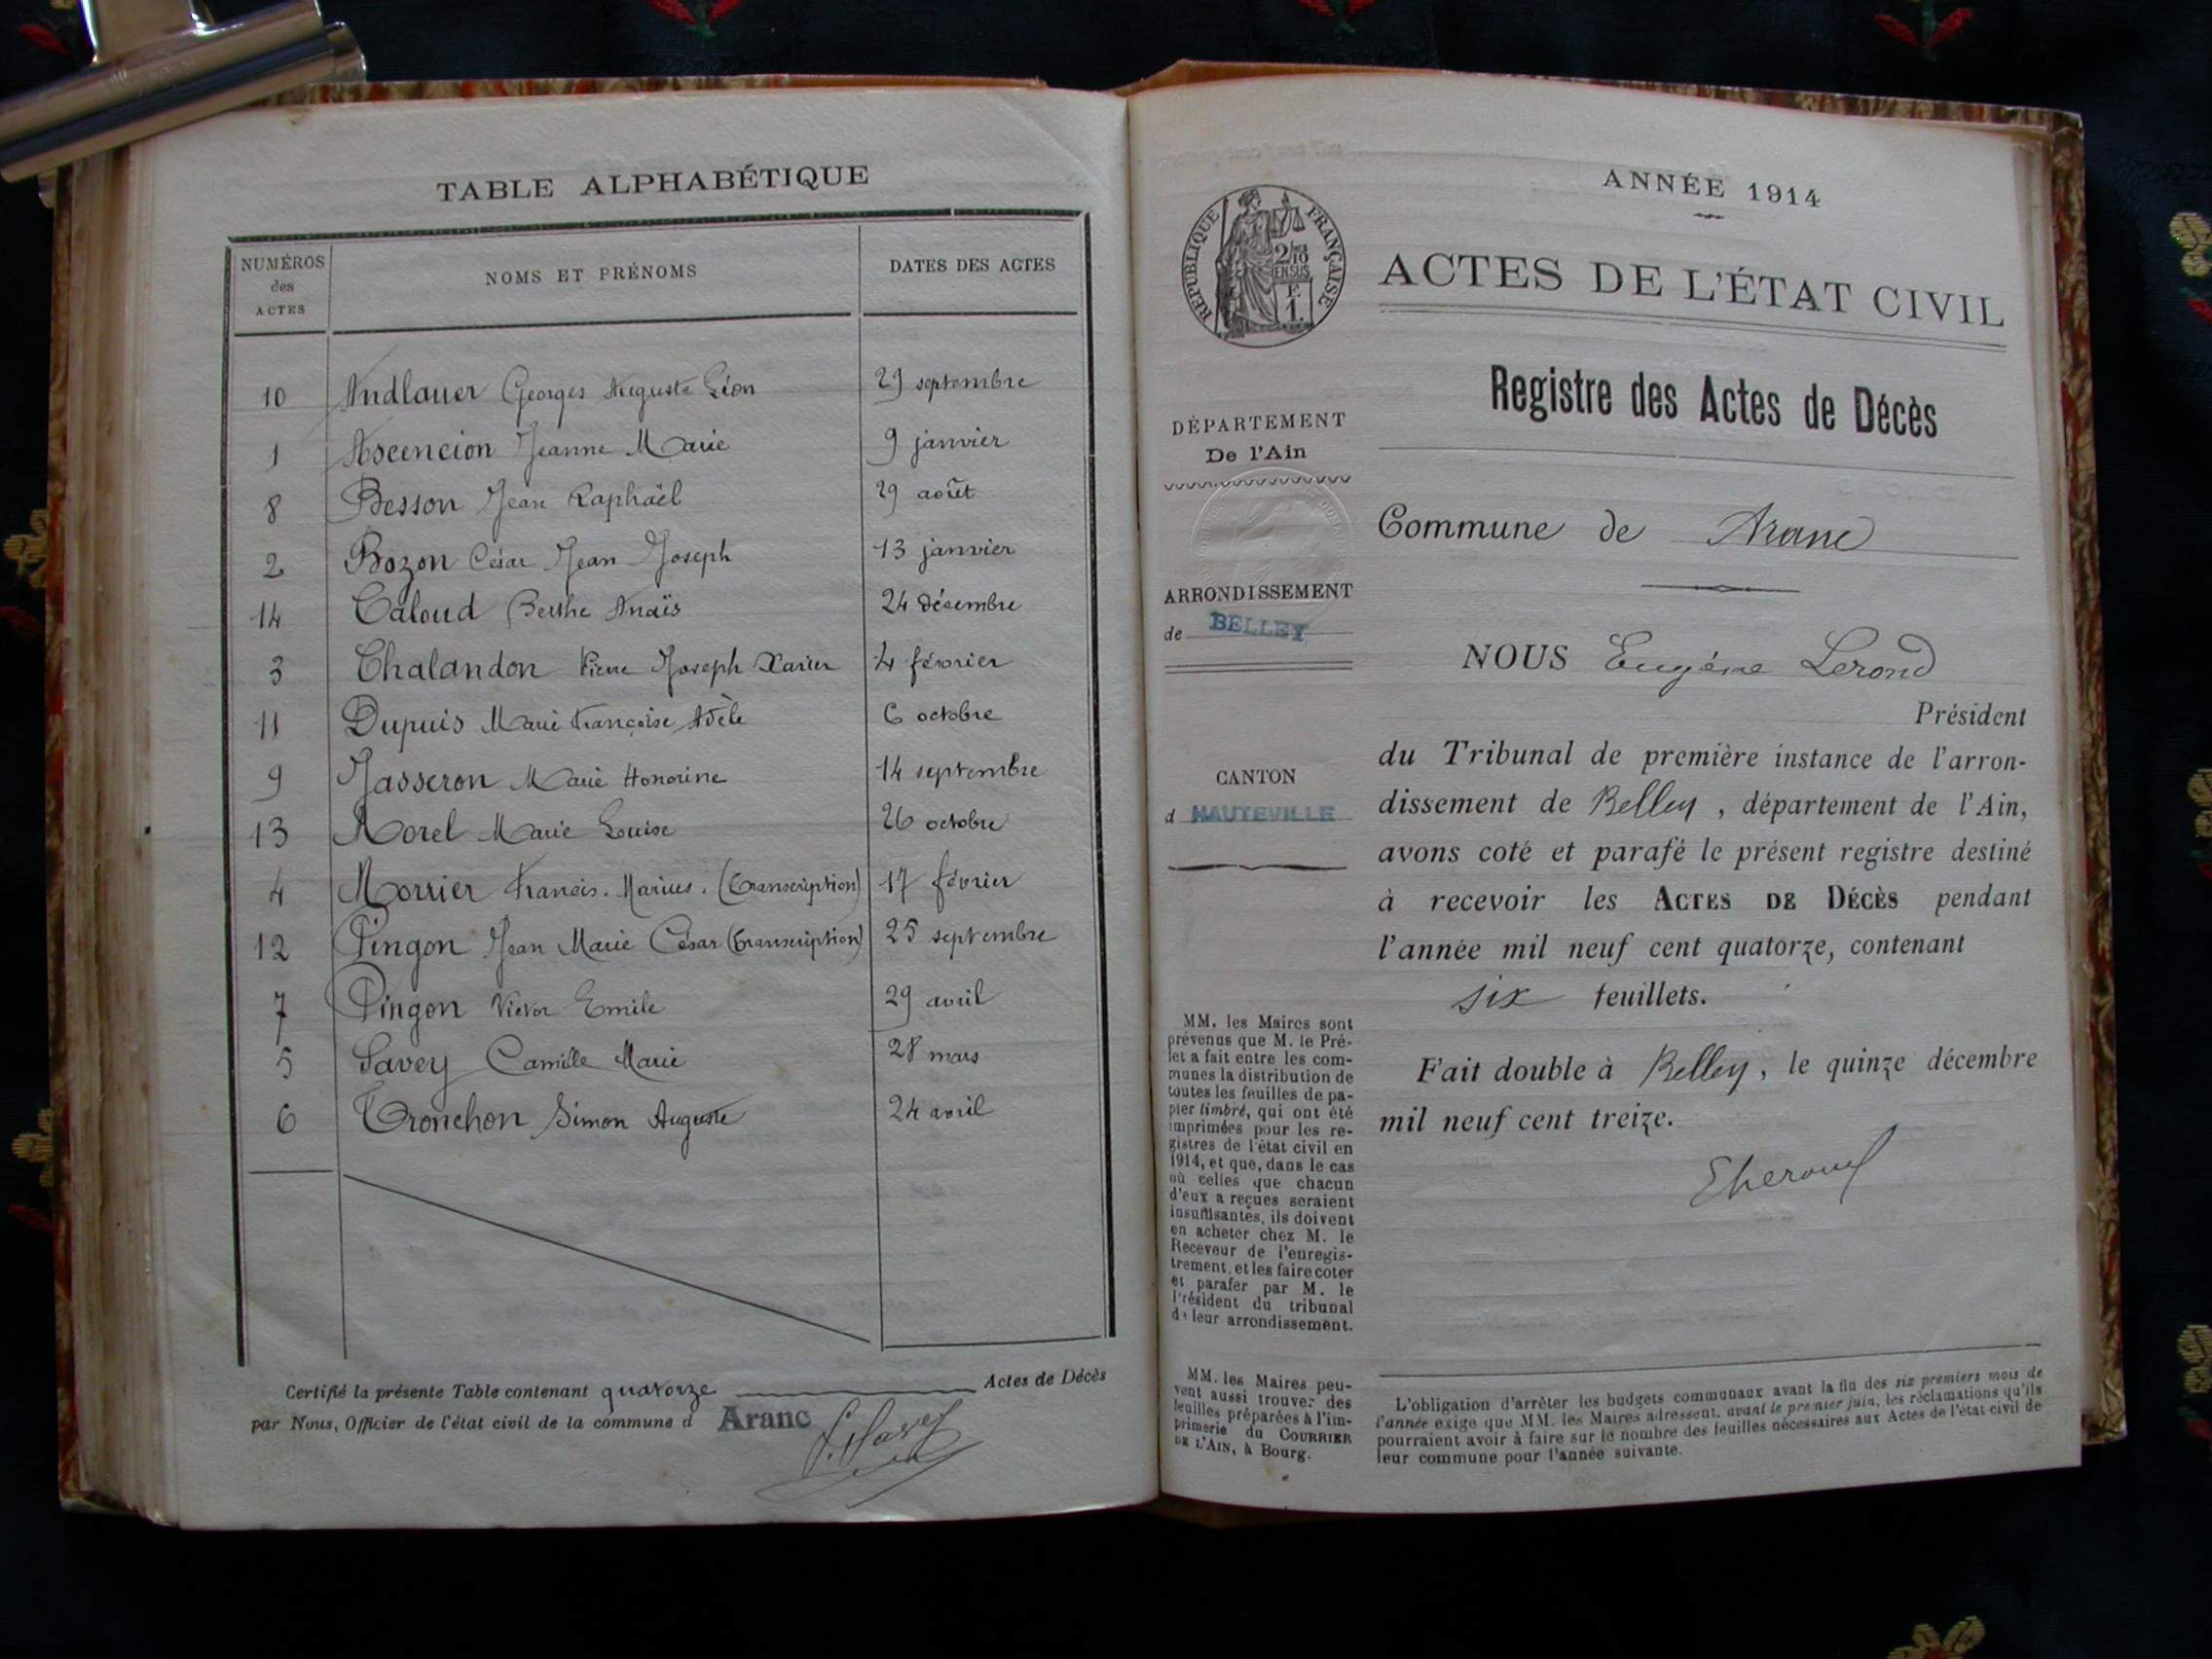 TABLE ALPHABÉTIQUE
NUMÉROS des ACTES NOMS ET PRÉNOMS DATES DES ACTES
10 Andlauer Georges Auguste Léon 29 septembre
1 Ascencion Jeanne Marie 9 janvier
8 Besson Jean Raphaël 29 août
2 Bozon César Jean Joseph 13 janvier
14 Caloud Berthe Anaïs 24 décembre
3 Chalandon Pierre Joseph Xavier 4 février
11 Dupuis Marie Françoise Adèle 6 octobre
9 Jasseron Marie Honorine 14 septembre
13 Morel Marie Louise 26 octobre
4 Morrier Francis. Marius. (Transcription) 17 février
12 Pingon Jean Marie César (Transcription) 25 septembre
7 Pingon Victor Emile 29 avril
5 Savey Camille Marie 28 mars
6 Tronchon Simon Auguste 24 avril
Certifié la présente Table contenant quatorze Actes de Décès
par Nous, Officier de l'état civil de la commune d Aranc
ANNÉE 1914
RÉPUBLIQUE FRANÇAISE
2/10
EN SUS
F.
1.
ACTES DE L'ÉTAT CIVIL
Registre des Actes de Décès
DÉPARTEMENT
De l'Ain
Commune de Aranc
ARRONDISSEMENT
de BELLEY
CANTON
d HAUTEVILLE
NOUS Eugène Lerond
Président
du Tribunal de première instance de l'arron-
dissement de Belley, département de l'Ain,
avons coté et parafé le présent registre destiné
à recevoir les ACTES DE DÉCÈS pendant
l'année mil neuf cent quatorze, contenant
six feuillets.
Fait double à Belley, le quinze décembre
mil neuf cent treize.
MM. les Maires sont
prévenus que M. le Pré-
fet a fait entre les com-
munes la distribution de
toutes les feuilles de pa-
pier timbré, qui ont été
imprimées pour les re-
gistres de l'état civil en
1914, et que, dans le cas
où celles que chacun
d'eux a reçues seraient
insuffisantes, ils doivent
en acheter chez M. le
Receveur de l'enregis-
trement, et les faire coter
et parafer par M. le
Président du tribunal
de leur arrondissement.
MM. les Maires peu-
vent aussi trouver des
feuilles préparées à l'im-
primerie du COURRIER
DE L'AIN, à Bourg.
L'obligation d'arrêter les budgets communaux avant la fin des six premiers mois de
l'année exige que MM. les Maires adressent, avant le premier juin, les réclamations qu'ils
pourraient avoir à faire sur le nombre des feuilles nécessaires aux Actes de l'état civil de
leur commune pour l'année suivante.